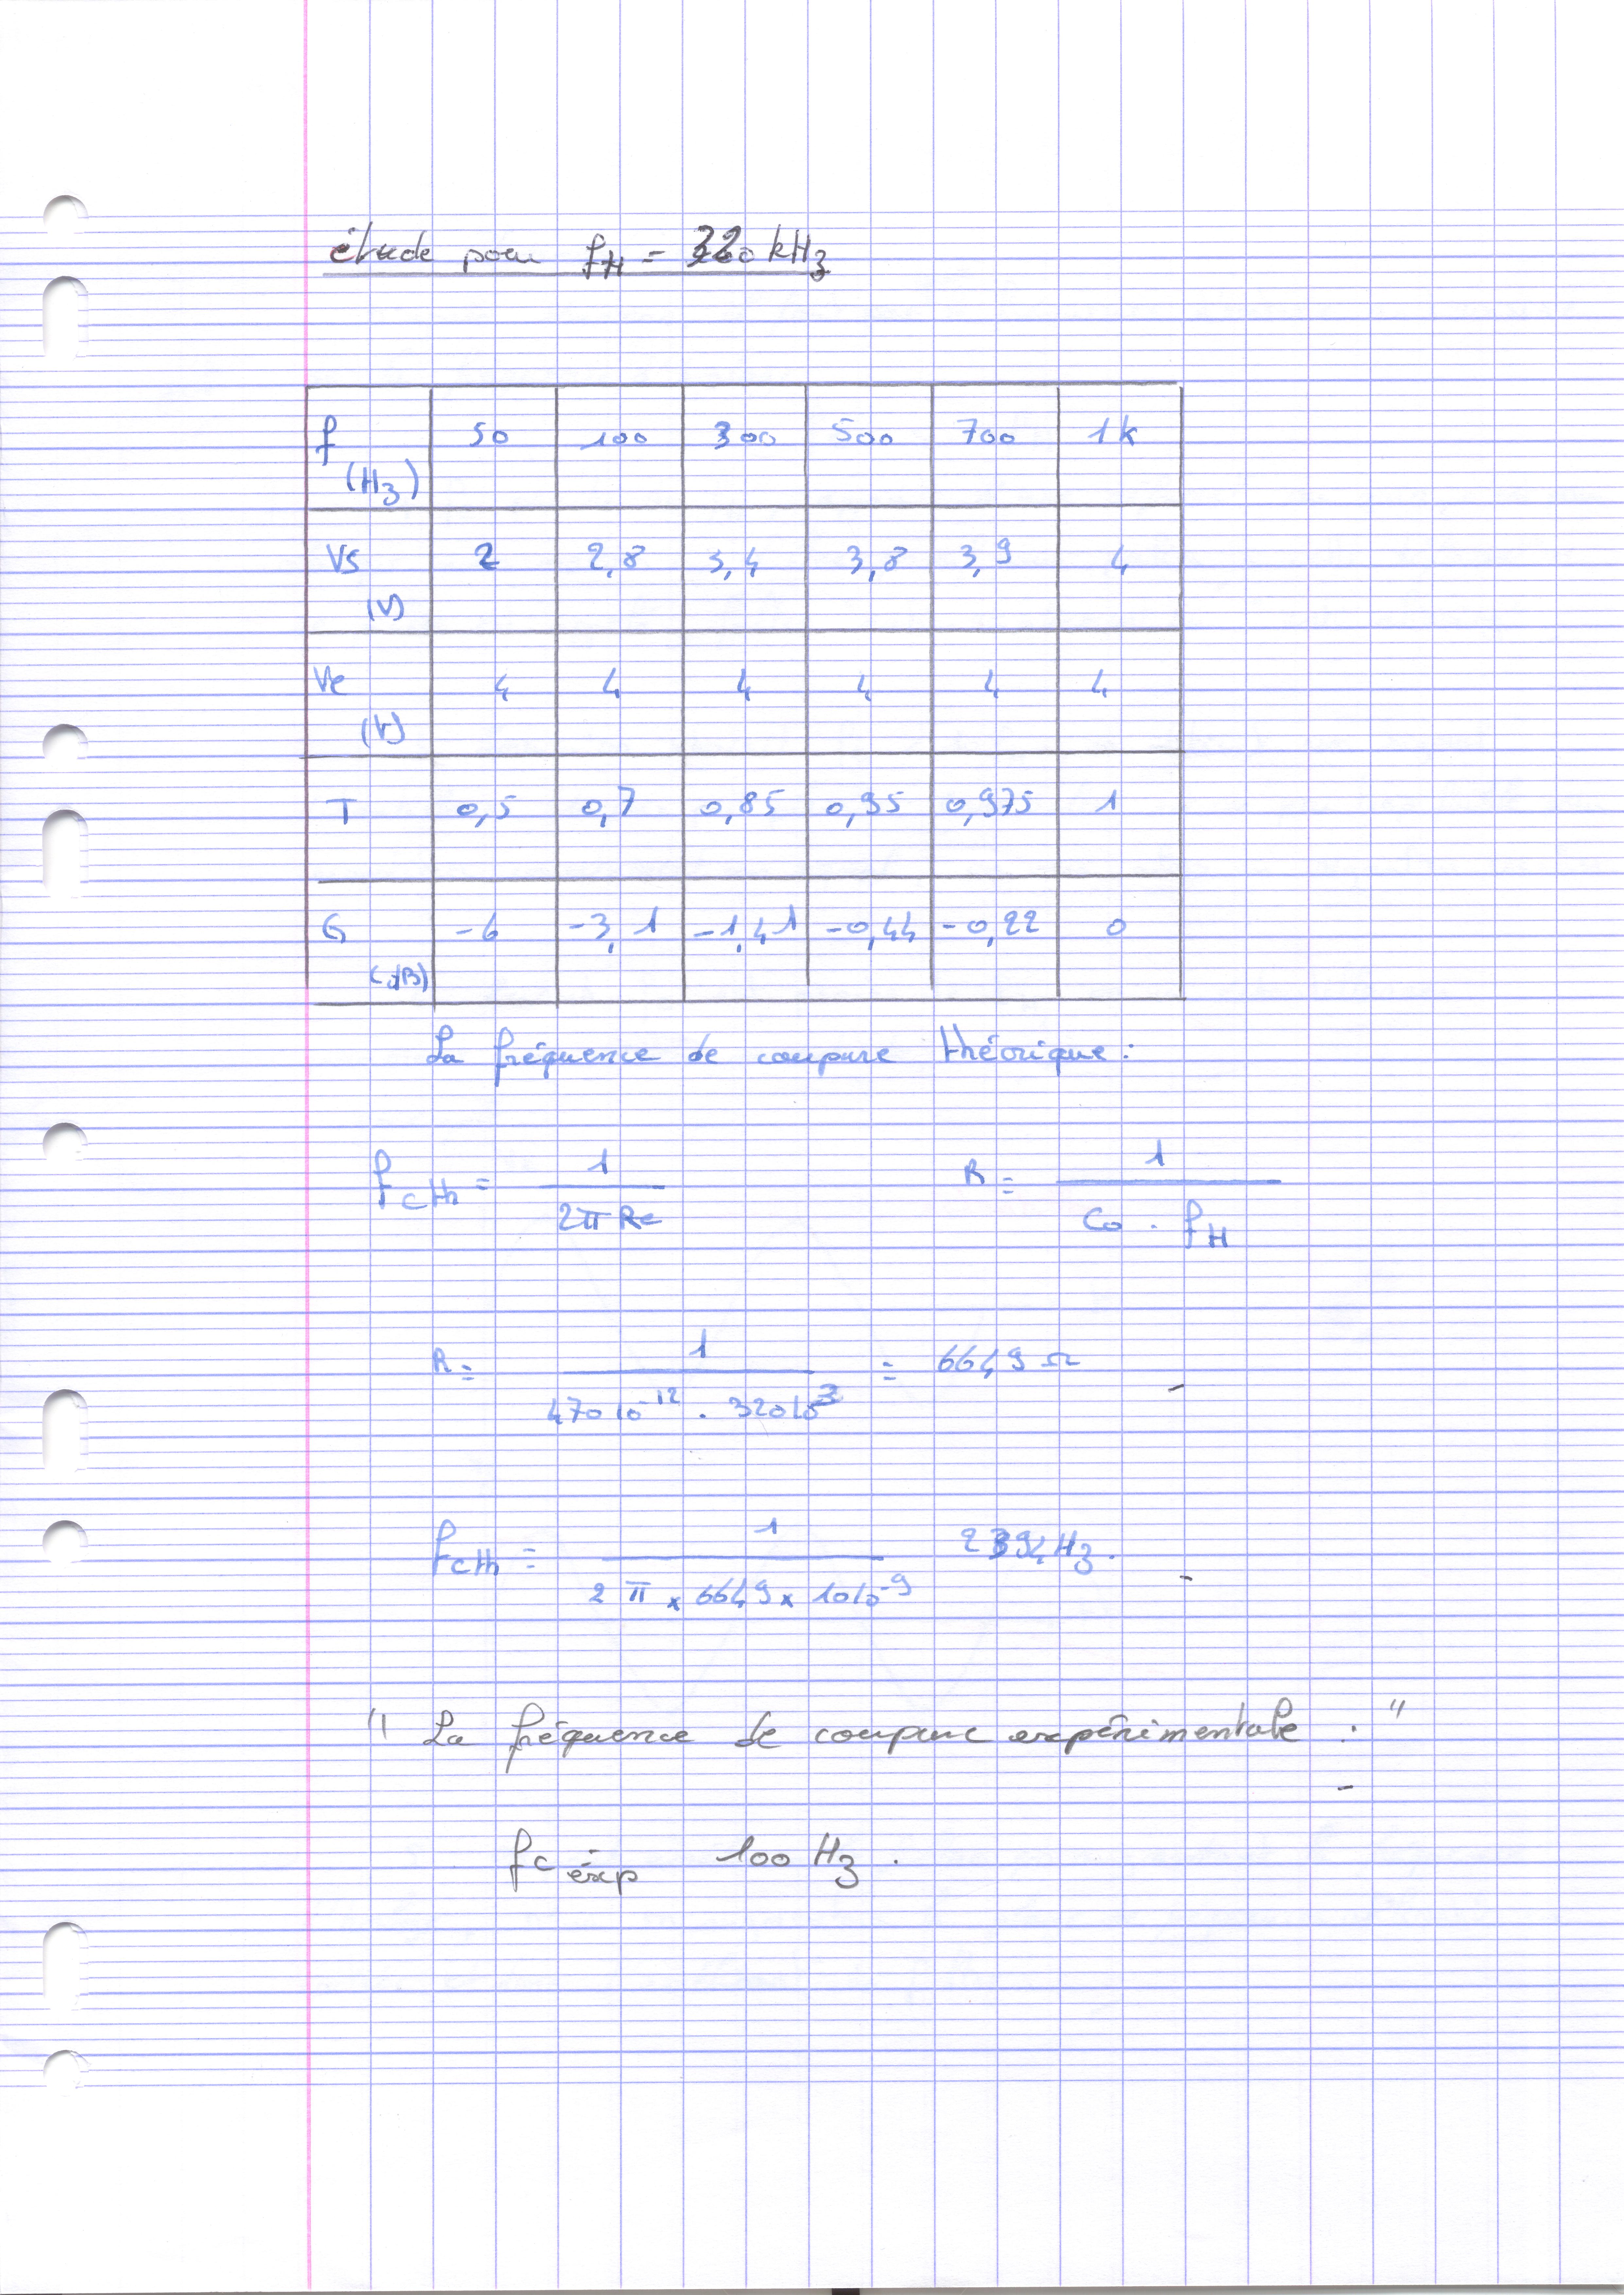 étude pour fH = 320 kHz
f (Hz) 50 100 300 500 700 1k
Vs (V) 2 2,8 3,4 3,8 3,9 4
Ve (V) 4 4 4 4 4 4
T 0,5 0,7 0,85 0,95 0,975 1
G (dB) -6 -3,1 -1,41 -0,44 -0,22 0
La fréquence de coupure théorique :
fcth = 1 / 2π Rc R = 1 / Co . fH
R = 1 / 470 10^-12 . 320 10^3 = 6649 Ω
fcth = 1 / 2 π x 6649 x 10 10^-9 2394 Hz.
" La fréquence de coupure expérimentale : "
fc éxp 100 Hz.